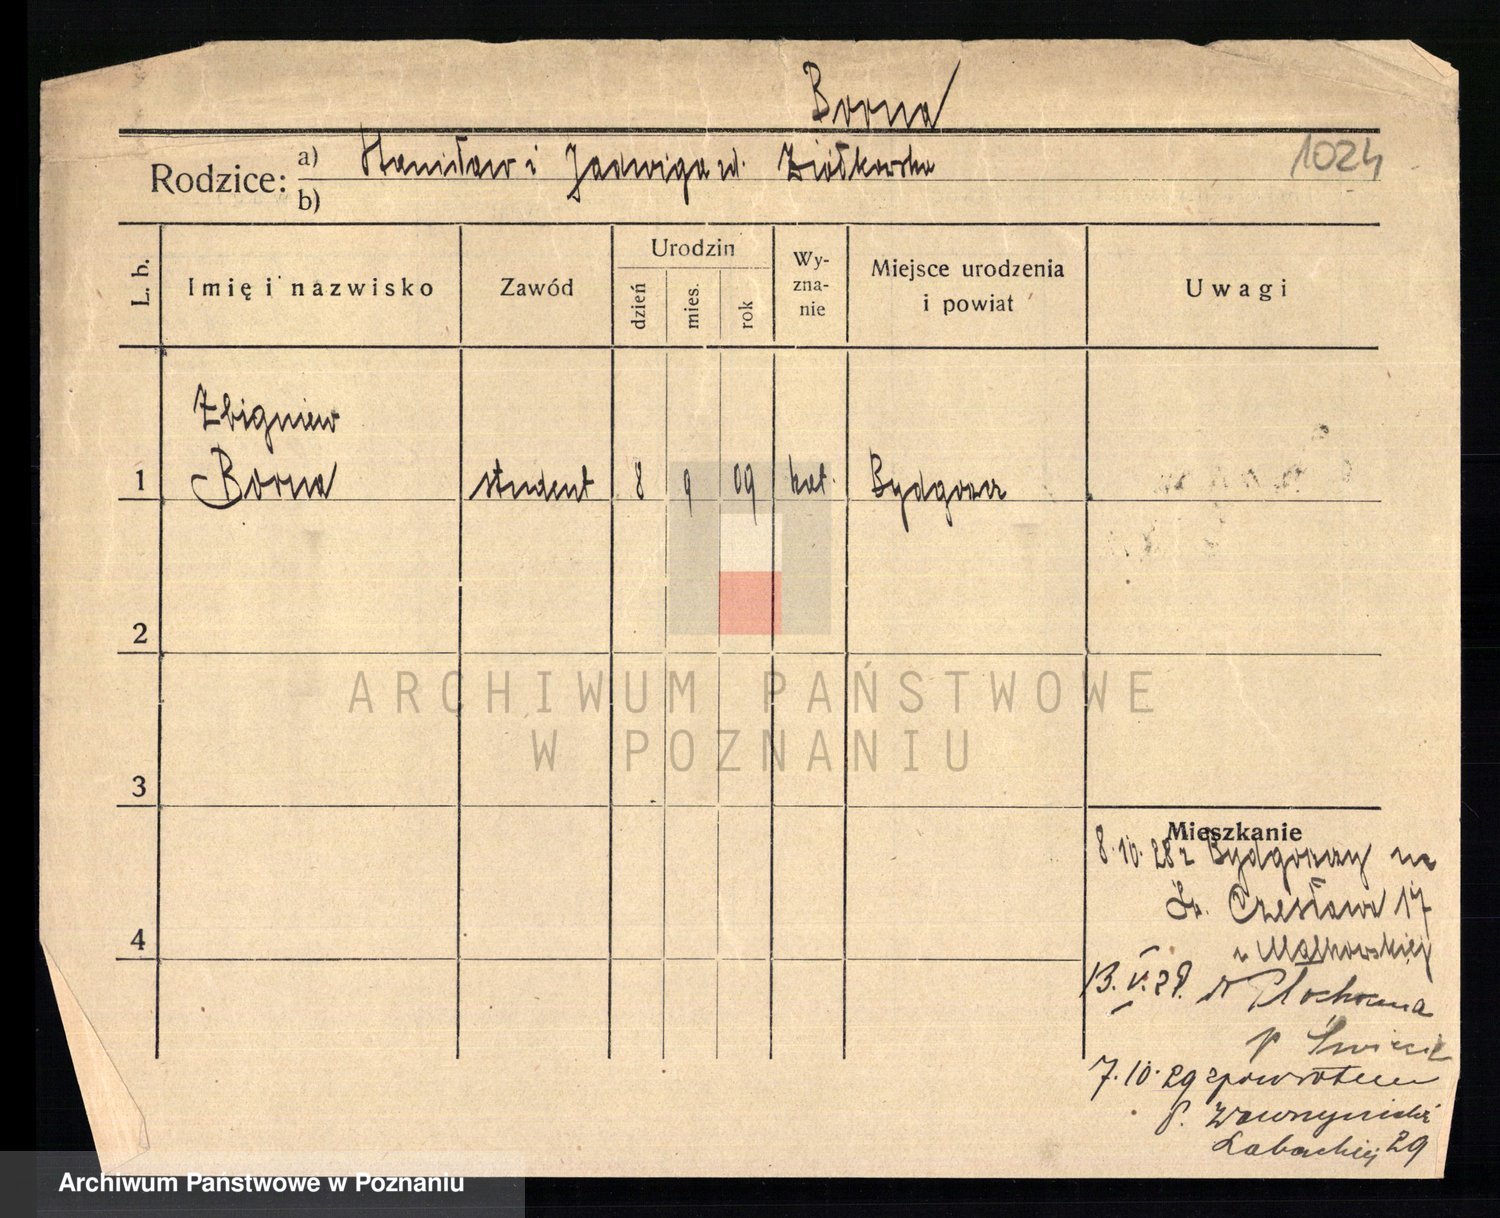 Borna
Rodzice: a) Stanisław i Jadwiga ud. Ziółkowska
1024
b)
L. b.
Imię i nazwisko
Zawód
Urodzin
dzień
mies.
rok
Wy-
zna-
nie
Miejsce urodzenia
i powiat
Uwagi
Zbigniew
1 Borna student 8 9 09 kat. Bydgoszcz
2
ARCHIWUM PAŃSTWOWE
W POZNANIU
3
Mieszkanie
8.10.28 z Bydgoszczy na
Św. Czesława 17
u Małkowskiej
4
13.V.29.
p Świecie
7.10.29 zpowrotem
29
Archiwum Państwowe w Poznaniu